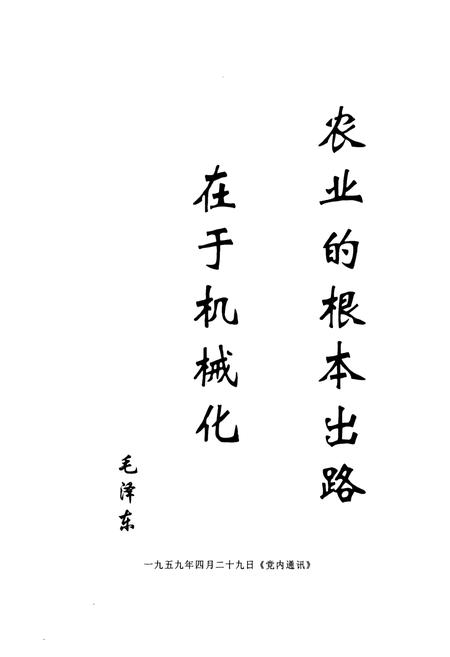 农业的根本出路
在于机械化
毛泽东
一九五九年四月二十九日《党内通讯》